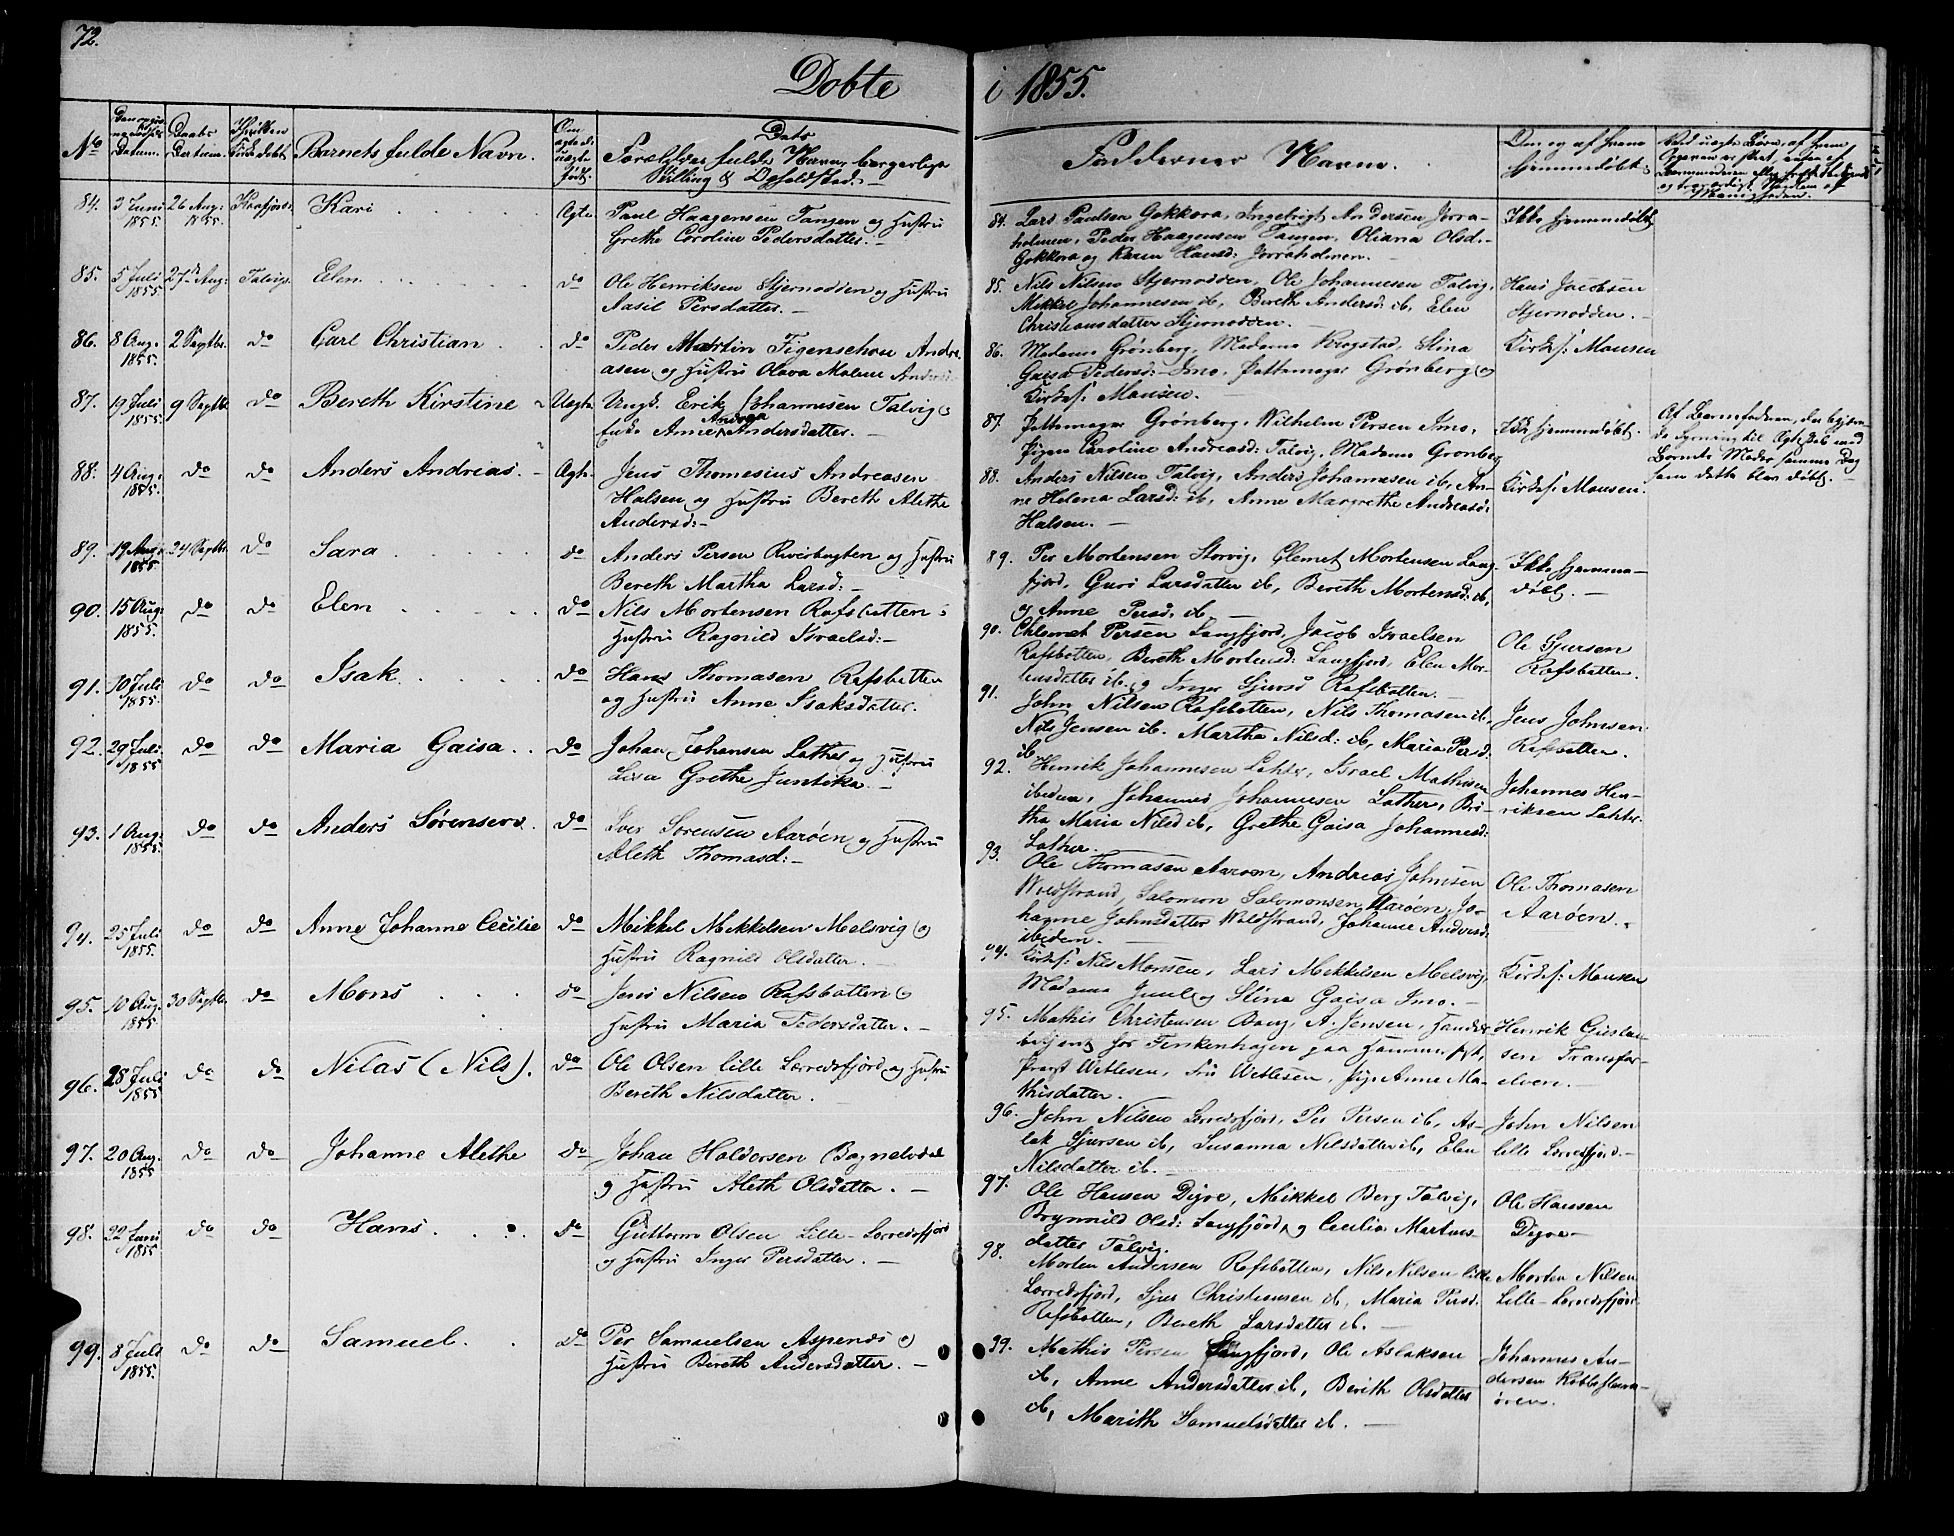 72.
Dobte
i 1855.
No
Daabs Dertium.
Barnets fulde Navn.
Forældres fulde Navn, borgerlige
Stilling & Opholdssted.
Faddernes Navne.
84. 3 Juni 1855. 26 Aug: 1855. Kaafjord. Kari Ægte Paul Haagensen Tangen og Hustru
Grethe Caroline Pedersdatter.
85. 5 Juli 1855 27de Aug: Talvig. Elen do Ole Henriksen Stjernodden og Hustru
Aasil Persdatter.
86. 8 Aug. 1855. 2 Septbr. do Carl Christian do Peder Martin Figenschou Andre-
asen og Hustru Olava Malene Andersd:
87. 19 Juli 1855. 9 Septbr. do Bereth Kirstine Uægte Ungk. Erik Johannesen Talvig og
Enke Anne Andrea Andersdatter.
88. 4 Aug. 1855. do do Anders Andreas. Ægte Jens Thomesius Andreasen
Halsen og Hustru Bereth Alethe
Andersd:
89. 19 Aug. 1855. 24 Septbr. do Sara do Anders Persen Riverbugten og Hustru
Bereth Martha Larsd:
90. 15 Aug: 1855. do do Elen do Nils Mortensen Rafsbotten
Hustru Ragnild Israelsd:
91. 10 Juli 1855. do do Isak do Hans Thomasen Rafsbotten
og Hustru Anne Isaksdatter.
92. 29 Juli 1855 do do Maria Gaisa do Johan Johansen Lather og Hustru
Lisa Grethe Juntika.
93. 1 Aug. 1855. do do Anders Sørensen do Iver Sørensen Aarøen og Hustru
Aleth Thomasd:
94. 25 Juli 1855. do do Anne Johanne Cecilie do Mikkel Mikkelsen Melsvig og
Hustru Ragnild Olsdatter.
95. 10 Aug. 1855. 30 Septbr. do Mons do Jens Nilsen Rafsbotten og
Hustru Maria Pedersdatter.
96. 28 Juli 1855 do do Nilas (Nils). do Ole Olsen lille Lerredsfjord og Hustru
Bereth Nilsdatter.
97. 20 Aug. 1855 do do Johanne Alethe do Johan Haldorsen Bognelvdal
og Hustru Aleth Olsdatter.
98. 22 Juni 1855 do do Hans do Guttorm Olsen Lille-Lerredsfjord
og Hustru Inger Persdatter.
99. 8 Juli 1855. do do Samuel do Per Samuelsen Aspenes og
Hustru Bereth Andersdatter.
84. Lars Paulsen Gokkora, Ingebrigt Andersen Jorra-
holmen, Peder Haagensen Tangen, Oliana Olsd.
Gokkora og Karen Hansd: Jorraholmen.
Ikke hjemmedøbt
85. Nils Nilsen Stjernodden, Ole Johannesen Talvig,
Mikkel Johannesen ib, Bereth Andersd: ib, Elen
Christiansdatter Stjernodden.
Hans Jacobsen
Stjernodden.
86. Madame Grønberg, Madame Krogstad, Stina
Gaisa Pedersd: Imo, Pattemager Grønberg og
Kirkes: Monsen.
Kirkes: Monsen
87. Pattemager Grønberg, Wilhelm Persen Imo,
Pigen Caroline Andreasd: Talvig, Madame Grønberg
Ikke hjemmedøbt.
Af Barnefaderen, der begjerede Lysning til Ægteskab med
Barnets Moder samme Dag
som dette blev døbt.
88. Anders Nilsen Talvig, Anders Johannesen ib, An-
ne Helena Larsd: ib, Anne Margrethe Andreasd:
Halsen.
Kirkes: Monsen.
89. Per Mortensen Storvig, Clemet Mortensen Lang-
fjord, Guri Larsdatter ib, Bereth Mortensd: ib,
og Anne Persd. ib
Ikke hjemme-
døbt.
90. Chlemet Persen Langfjord, Jacob Israelsen
Rafsbotten, Bereth Mortensd: Langfjord, Elen Mor-
tensdatter ib. og Inger Sjursd Rafsbotten.
Ole Sjursen
Rafsbotten.
91. John Nilsen Rafsbotten, Nils Thomasen ib,
Nils Jensen ib. Martha Nilsd: ib, Maria Persd:
ib
Jens Johnsen
Rafsbotten.
92. Henrik Johannesen Lather, Israel Mathisen
ibedem, Johannes Johannesen Lather, Bri-
tha Maria Nilsd ib, Grethe Gaisa Johannesd:
Lather.
Johannes Hen-
riksen Lahter.
93. Ole Thomasen Aarøen, Andreas Johnsen
Woldstrand, Salomon Salomonsen Aarøen, Jo-
hanne Johnsdatter Woldstrand, Johanne Andersd:
ibedem.
Ole Thomasen
Aarøen.
94. Kirkes: Nils Monsen, Lars Mikkelsen Melsvig,
Madame Juul og Stina Gaisa Imo.
Kirkes: Monsen
95. Mathis Christensen Bang, A. Jensen, Handels-
betjent for Finkenhagen paa Hammerfest,
Provst Wetlesen, Fru Wetlesen, Pige Anne Ma-
thisdatter.
Henrik Gustav-
sen Transfar-
elven.
96. John Nilsen Lerredsfjord, Per Persen ib, As-
lak Sjursen ib, Susanna Nilsdatter ib, Elen
Nilsdatter ib.
John Nilsen
lille Lerredsfjord.
97. Ole Hansen Digre, Mikkel Berg Talvig,
Brynnild Olsd: Langfjord, og Cecilia Martins-
datter Talvig.
Ole Hansen
Digre
98. Morten Andersen Rafsbotten, Nils Nilsen lille
Lerredsfjord, Sjur Christiansen ib, Maria Persd:
Rafsbotten, Bereth Larsdatter ib.
Morten Nilsen
Lille-Lerredsfjord
99. Mathis Persen Langfjord, Ole Aslaksen
ib, Anne Andersdatter ib, Berith Olsdatter
ib, Marith Samuelsdatter ib.
Johannes An-
dersen Kobbesleiva-
øren.